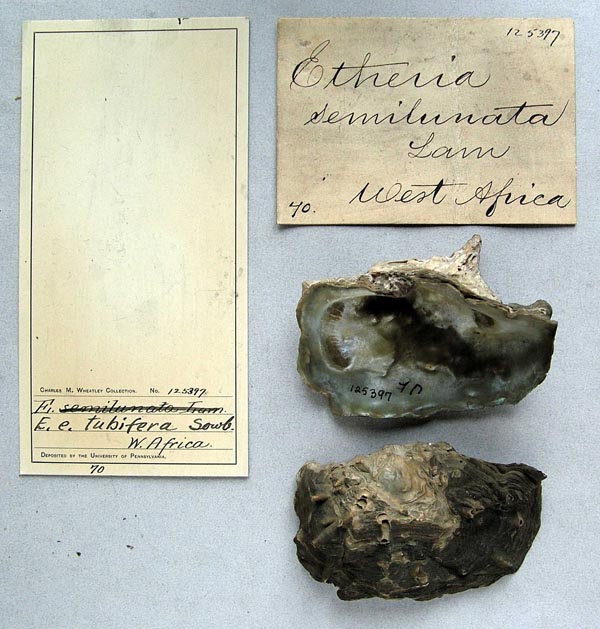 CHARLES M. WHEATLEY COLLECTION. No. 125397
E. semilunata Lam.
E. e. tubifera Sowb.
W. Africa.
DEPOSITED BY THE UNIVERSITY OF PENNSYLVANIA.
70
125397
Etheria
semilunata
Lam
West Africa
70.
125397 70